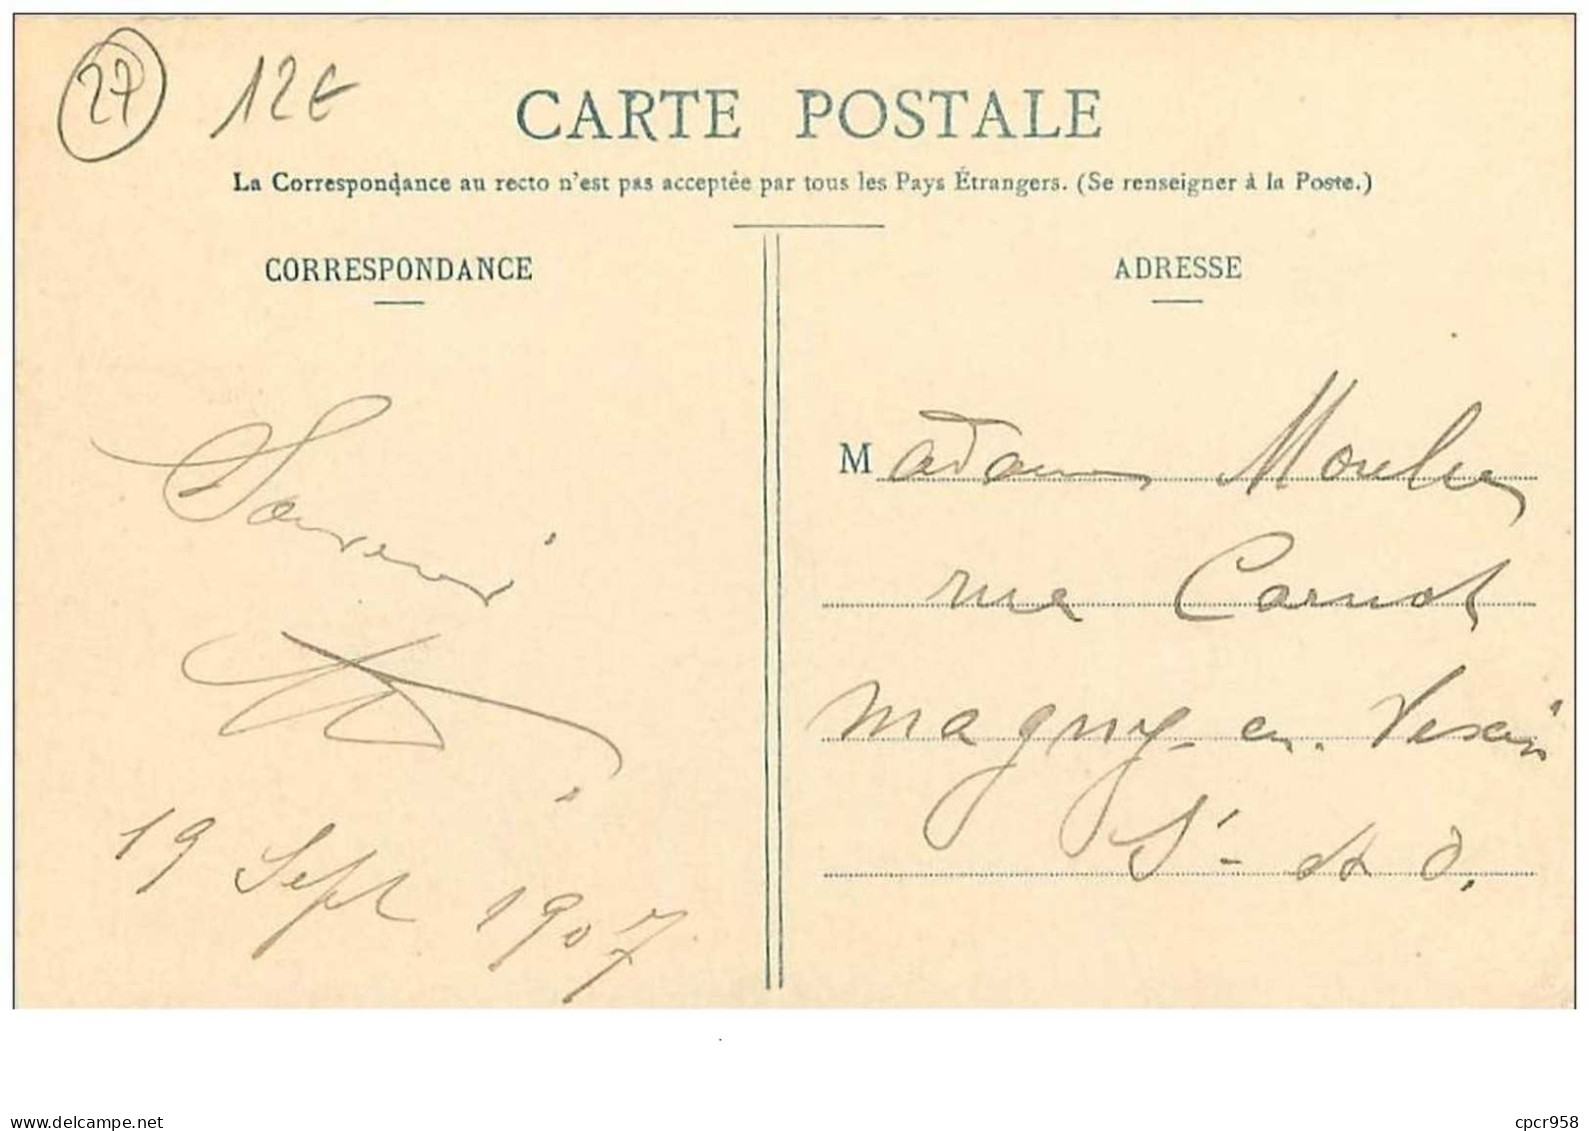 27 12€
CARTE POSTALE
La Correspondance au recto n'est pas acceptée par tous les Pays Étrangers. (Se renseigner à la Poste.)
CORRESPONDANCE
Souvenir
19 Sept 1907
ADRESSE
Madame
rue Carnot
Magny-en-Vexin
S. et O.
delcampe.net
cpcr958